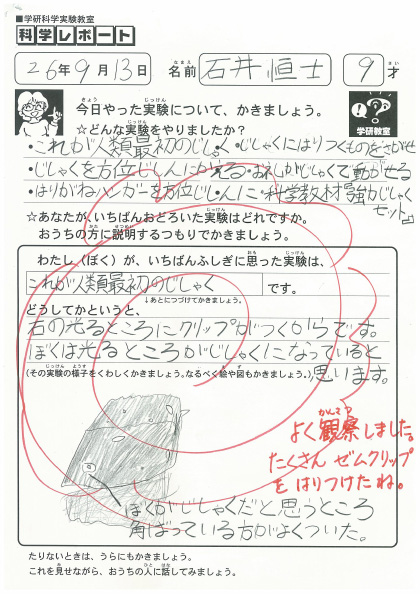 ■学研科学実験教室
科学レポート
26年9月13日 名前 なまえ 石井恒士 9才 さい
今日やった実験について、かきましょう。
☆どんな実験をやりましたか？
学研教室
・これが人類最初のじしゃく・じしゃくにはりつくものをさがせ
・じしゃくを方位じしんにかえる・お札がじしゃくで動がせる
・はりがねハンガーを方位じしんに・科学教材強力じしゃく
セット
☆あなたが、いちばんおどろいた実験はどれですか。
おうちの方に説明するつもりでかきましょう。
わたし（ぼく）が、いちばんふしぎに思った実験は、
これが人類最初のじしゃく です。
↓あとにつづけてかきましょう。
どうしてかというと、
右の光るところにクリップがつくからです。
ぼくは光るところがじしゃくになっていると
(その実験の様子をくわしくかきましょう。なるべく絵や図もかきましょう。) 思います。
よく観察しました。
たくさん ゼムクリップ
をはりつけたね。
ぼくがじしゃくだと思うところ
角ばっている方がよくついた。
たりないときは、うらにもかきましょう。
これを見せながら、おうちの人に話してみましょう。